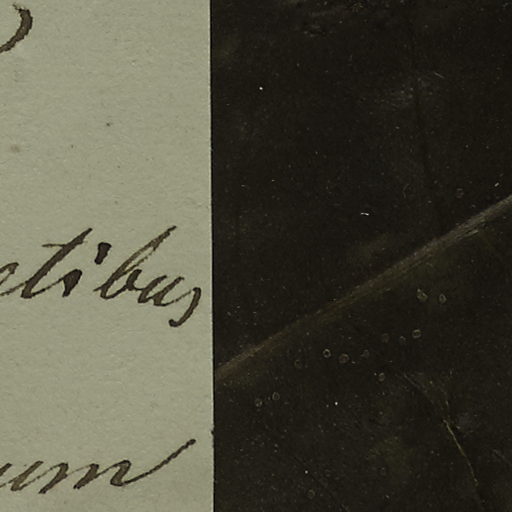 etibus
um